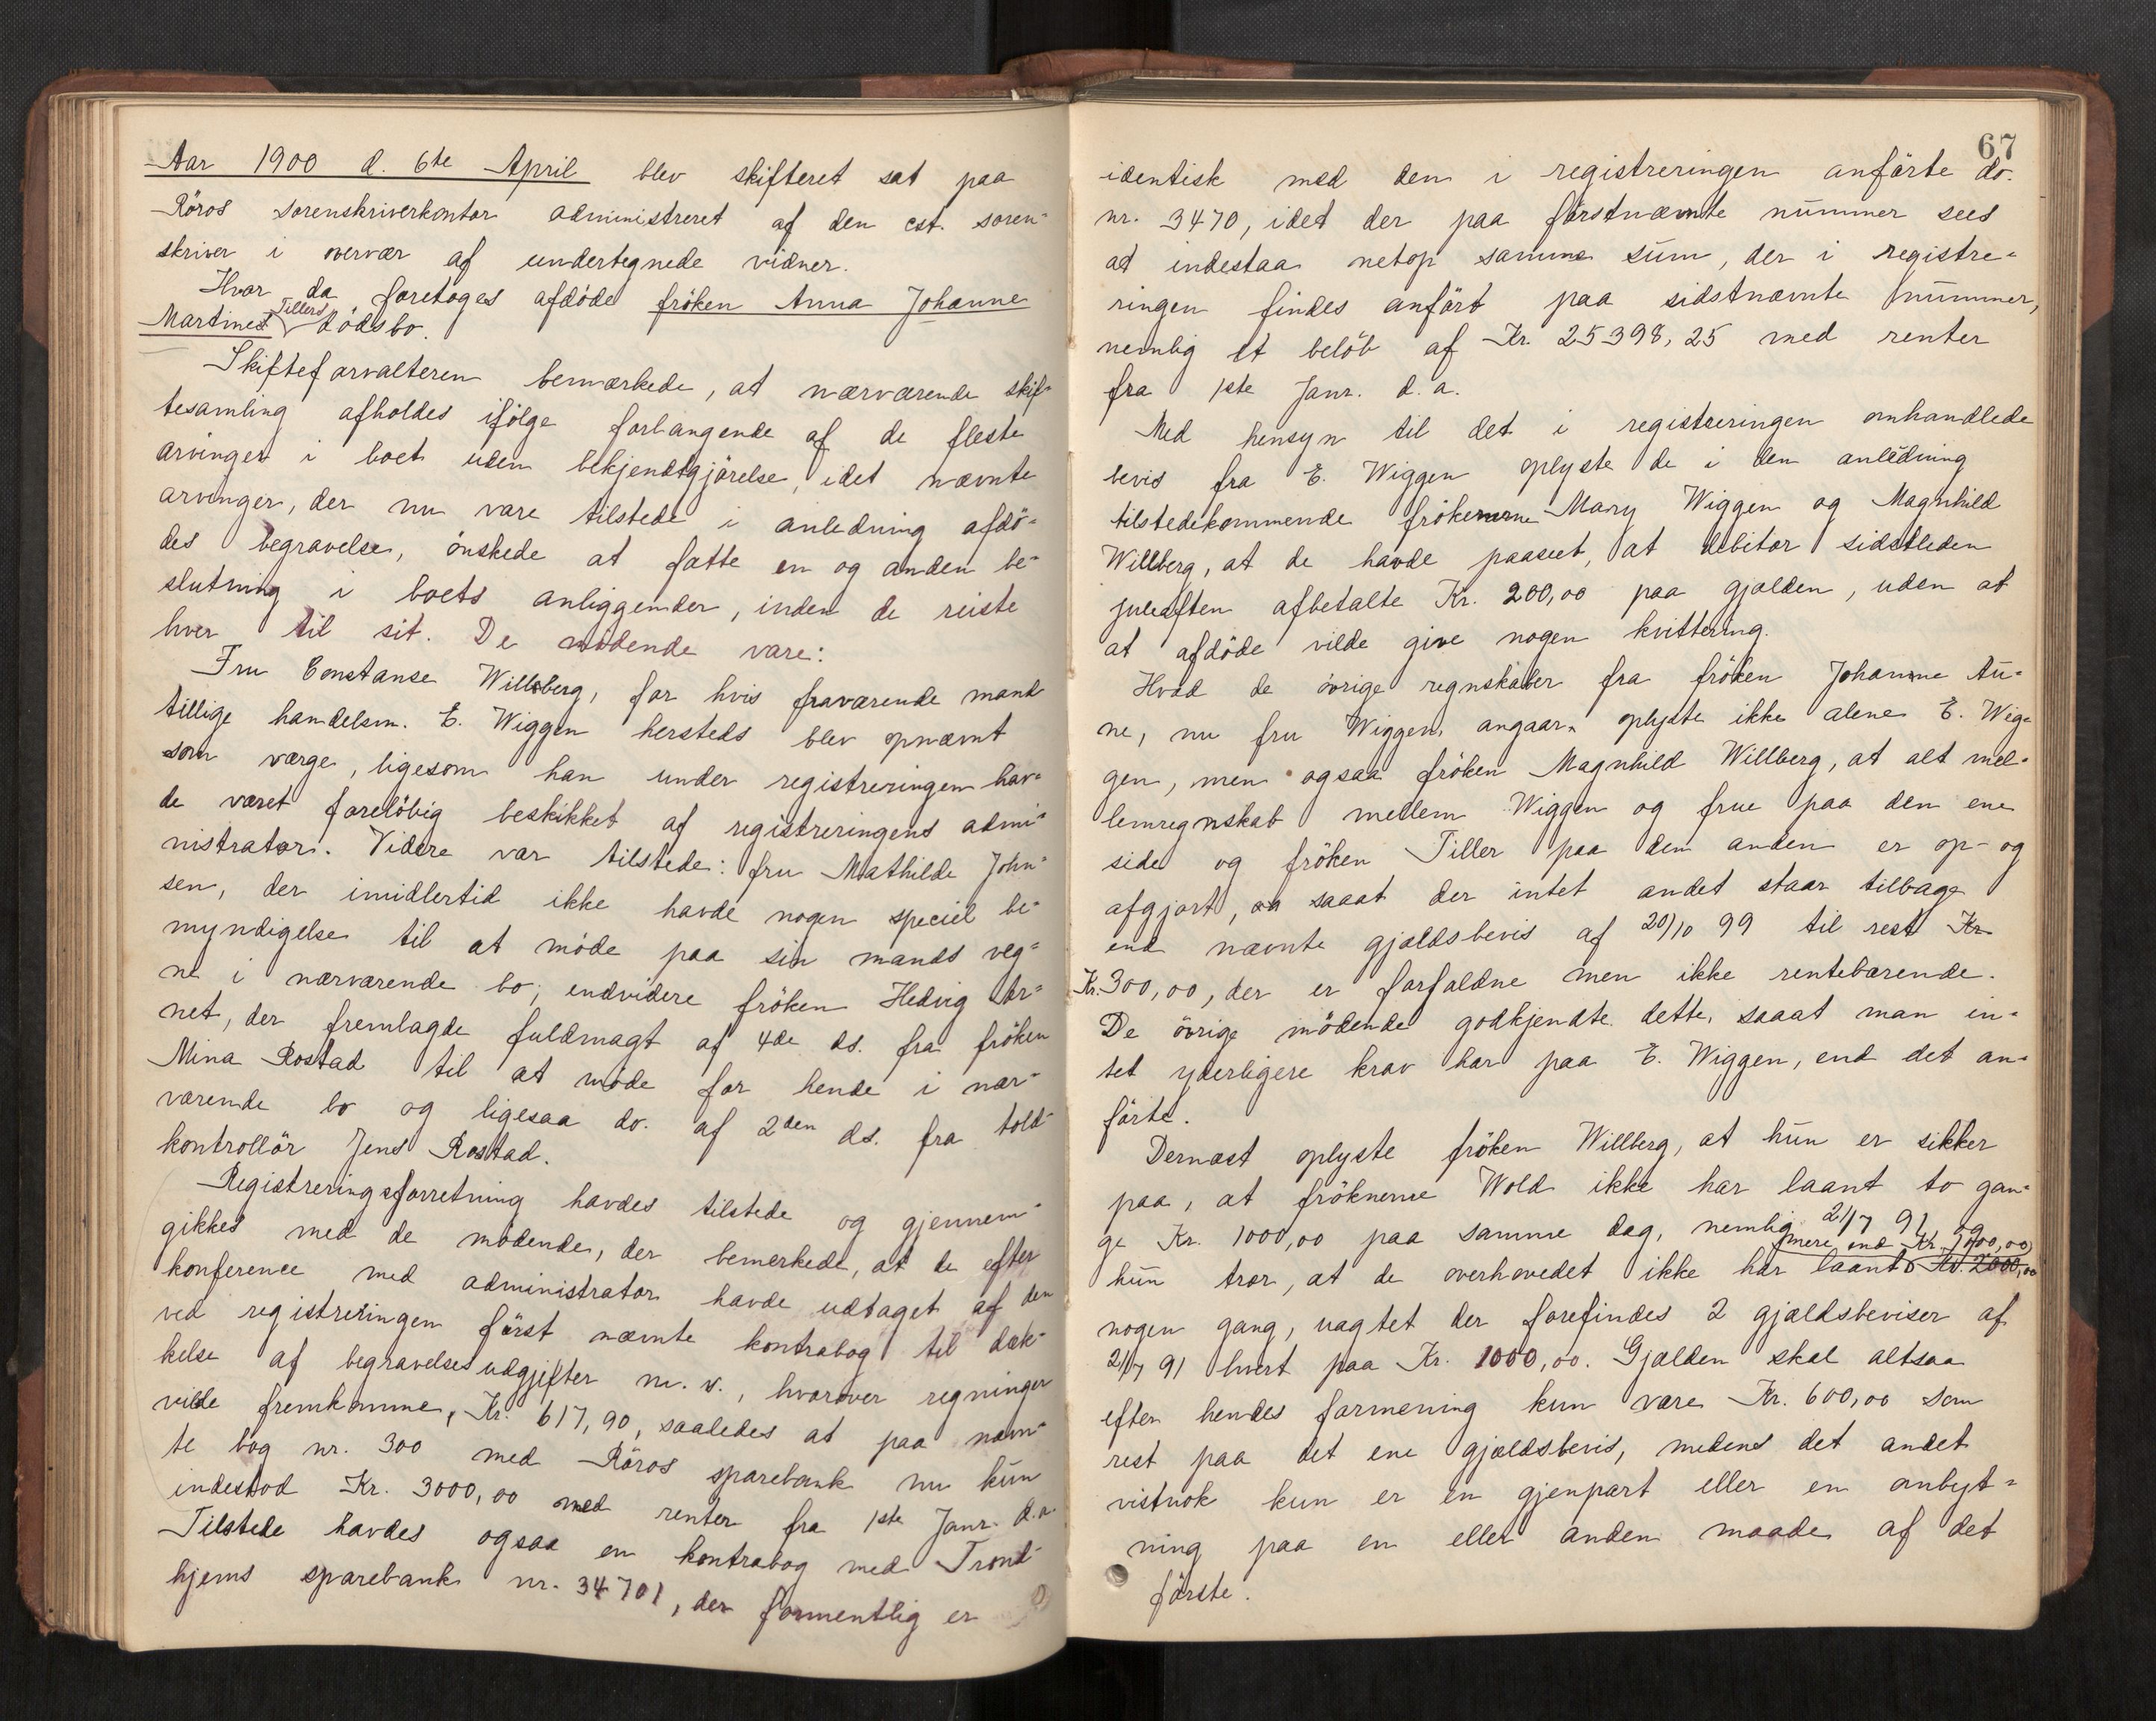 Aar 1900 d. 6te April blev skifteret sat paa
Röros sorenskriverkontor administreret af den cst. soren-
skriver i overvær af undertegnede vidner.
Hvor da foretoges afdöde fröken Anna Johanne
Martines Tillers dödsbo.
Skifteforvalteren bemærkede, at nærværende skif-
tesamling afholdes ifölge forlangende af de fleste
arvinger i boet uden bekjendtgjörelse, idet nævnte
arvinger, der nu vare tilstede i anledning afdö-
des begravelse, önskede at fatte en og anden be-
slutning i boets anliggender, inden de reiste
hver til sit. De mödende vare:
Fru Constanse Willsberg, for hvis fraværende mand
tillige handelsm. E. Wiggen hersteds blev opnævnt
som værge, ligesom han under registreringen hav-
de været foreløbig beskikket af registreringens admi-
nistrator. Videre var tilstede: fru Mathilde John-
sen, der imidlertid ikke havde nogen speciel be-
myndigelse til at möde paa sin mands veg-
ne i nærværende bo; endvidere fröken Hedvig Ar-
net, der fremlagde fuldmagt af 4de ds. fra fröken
Mina Rostad til at möde for hende i nær-
værende bo og ligesaa do. af 2den ds. fra told-
kontrollör Jens Rostad.
Registreringsforretning havdes tilstede og gjennem-
gikkes med de mödende, der bemerkede, at de efter
konference med administrator havde udtaget af den
ved registreringen först nævnte kontrabog til dæk-
kelse af begravelsesudgifter m. v., hvorover regninger
vilde fremkomme, Kr. 617,90, saaledes at paa nævn-
te bog nr. 300 med Röros sparebank nu kun
indestod Kr. 3000,00 med renter fra 1ste Janr. d.a.
Tilstede havdes ogsaa en kontrabog med Trond-
hjems sparebank nr. 34701, der formentlig er
67
identisk med den i registreringen anförte do.
nr. 3470, idet der paa förstnævnte nummer sees
at indestaa netop samme sum, der i registre-
ringen findes anfört paa sidstnævnte nummer,
nemlig et belöb af Kr. 25398,25 med renter
fra 1ste Janr. d. a.
Med hensyn til det i registreringen omhandlede
bevis fra E. Wiggen oplyste de i den anledning
tilstedekommende frökenerne Mary Wiggen og Magnhild
Willberg, at de havde paaseet, at debitor sidstleden
juleaften afbetalte Kr. 200,00 paa gjælden, uden at
at afdöde vilde give nogen kvittering.
Hvad de övrige regnskaber fra fröken Johanne Au-
ne, nu fru Wiggen, angaar, oplyste ikke alene E. Wig-
gen, men ogsaa fröken Magnhild Willberg, at alt mel-
lemregnskab mellem Wiggen og frue paa den ene
side og fröken Tiller paa den anden er op- og
afgjort, saaat der intet andet staar tilbage
end nævnte gjældsbevis af 20/10 99 til rest Kr
Kr. 300,00, der er forfaldne men ikke rentebærende.
De övrige mödende godkjendte dette, saaat man in-
tet yderligere krav har paa E. Wiggen, end det an-
förte.
Dernæst oplyste fröken Willberg, at hun er sikker
paa, at fröknerne Wold ikke har laant to gan-
ge Kr. 1000,00 paa samme dag, nemlig 21/7 91, og
mere end Kr. 1000,00
hun tror, at de overhovedet ikke har laant Kr. 2000,00
nogen gang, uagtet der forefindes 2 gjældsbeviser af
21/7 91 hvert paa Kr. 1000,00. Gjælden skal altsaa
efter hendes formening kun være Kr. 600,00 som
rest paa det ene gjældsbevis, medens det andet
vistnok kun er en gjenpart eller en ombyt-
ning paa en eller anden maade af det
förste.